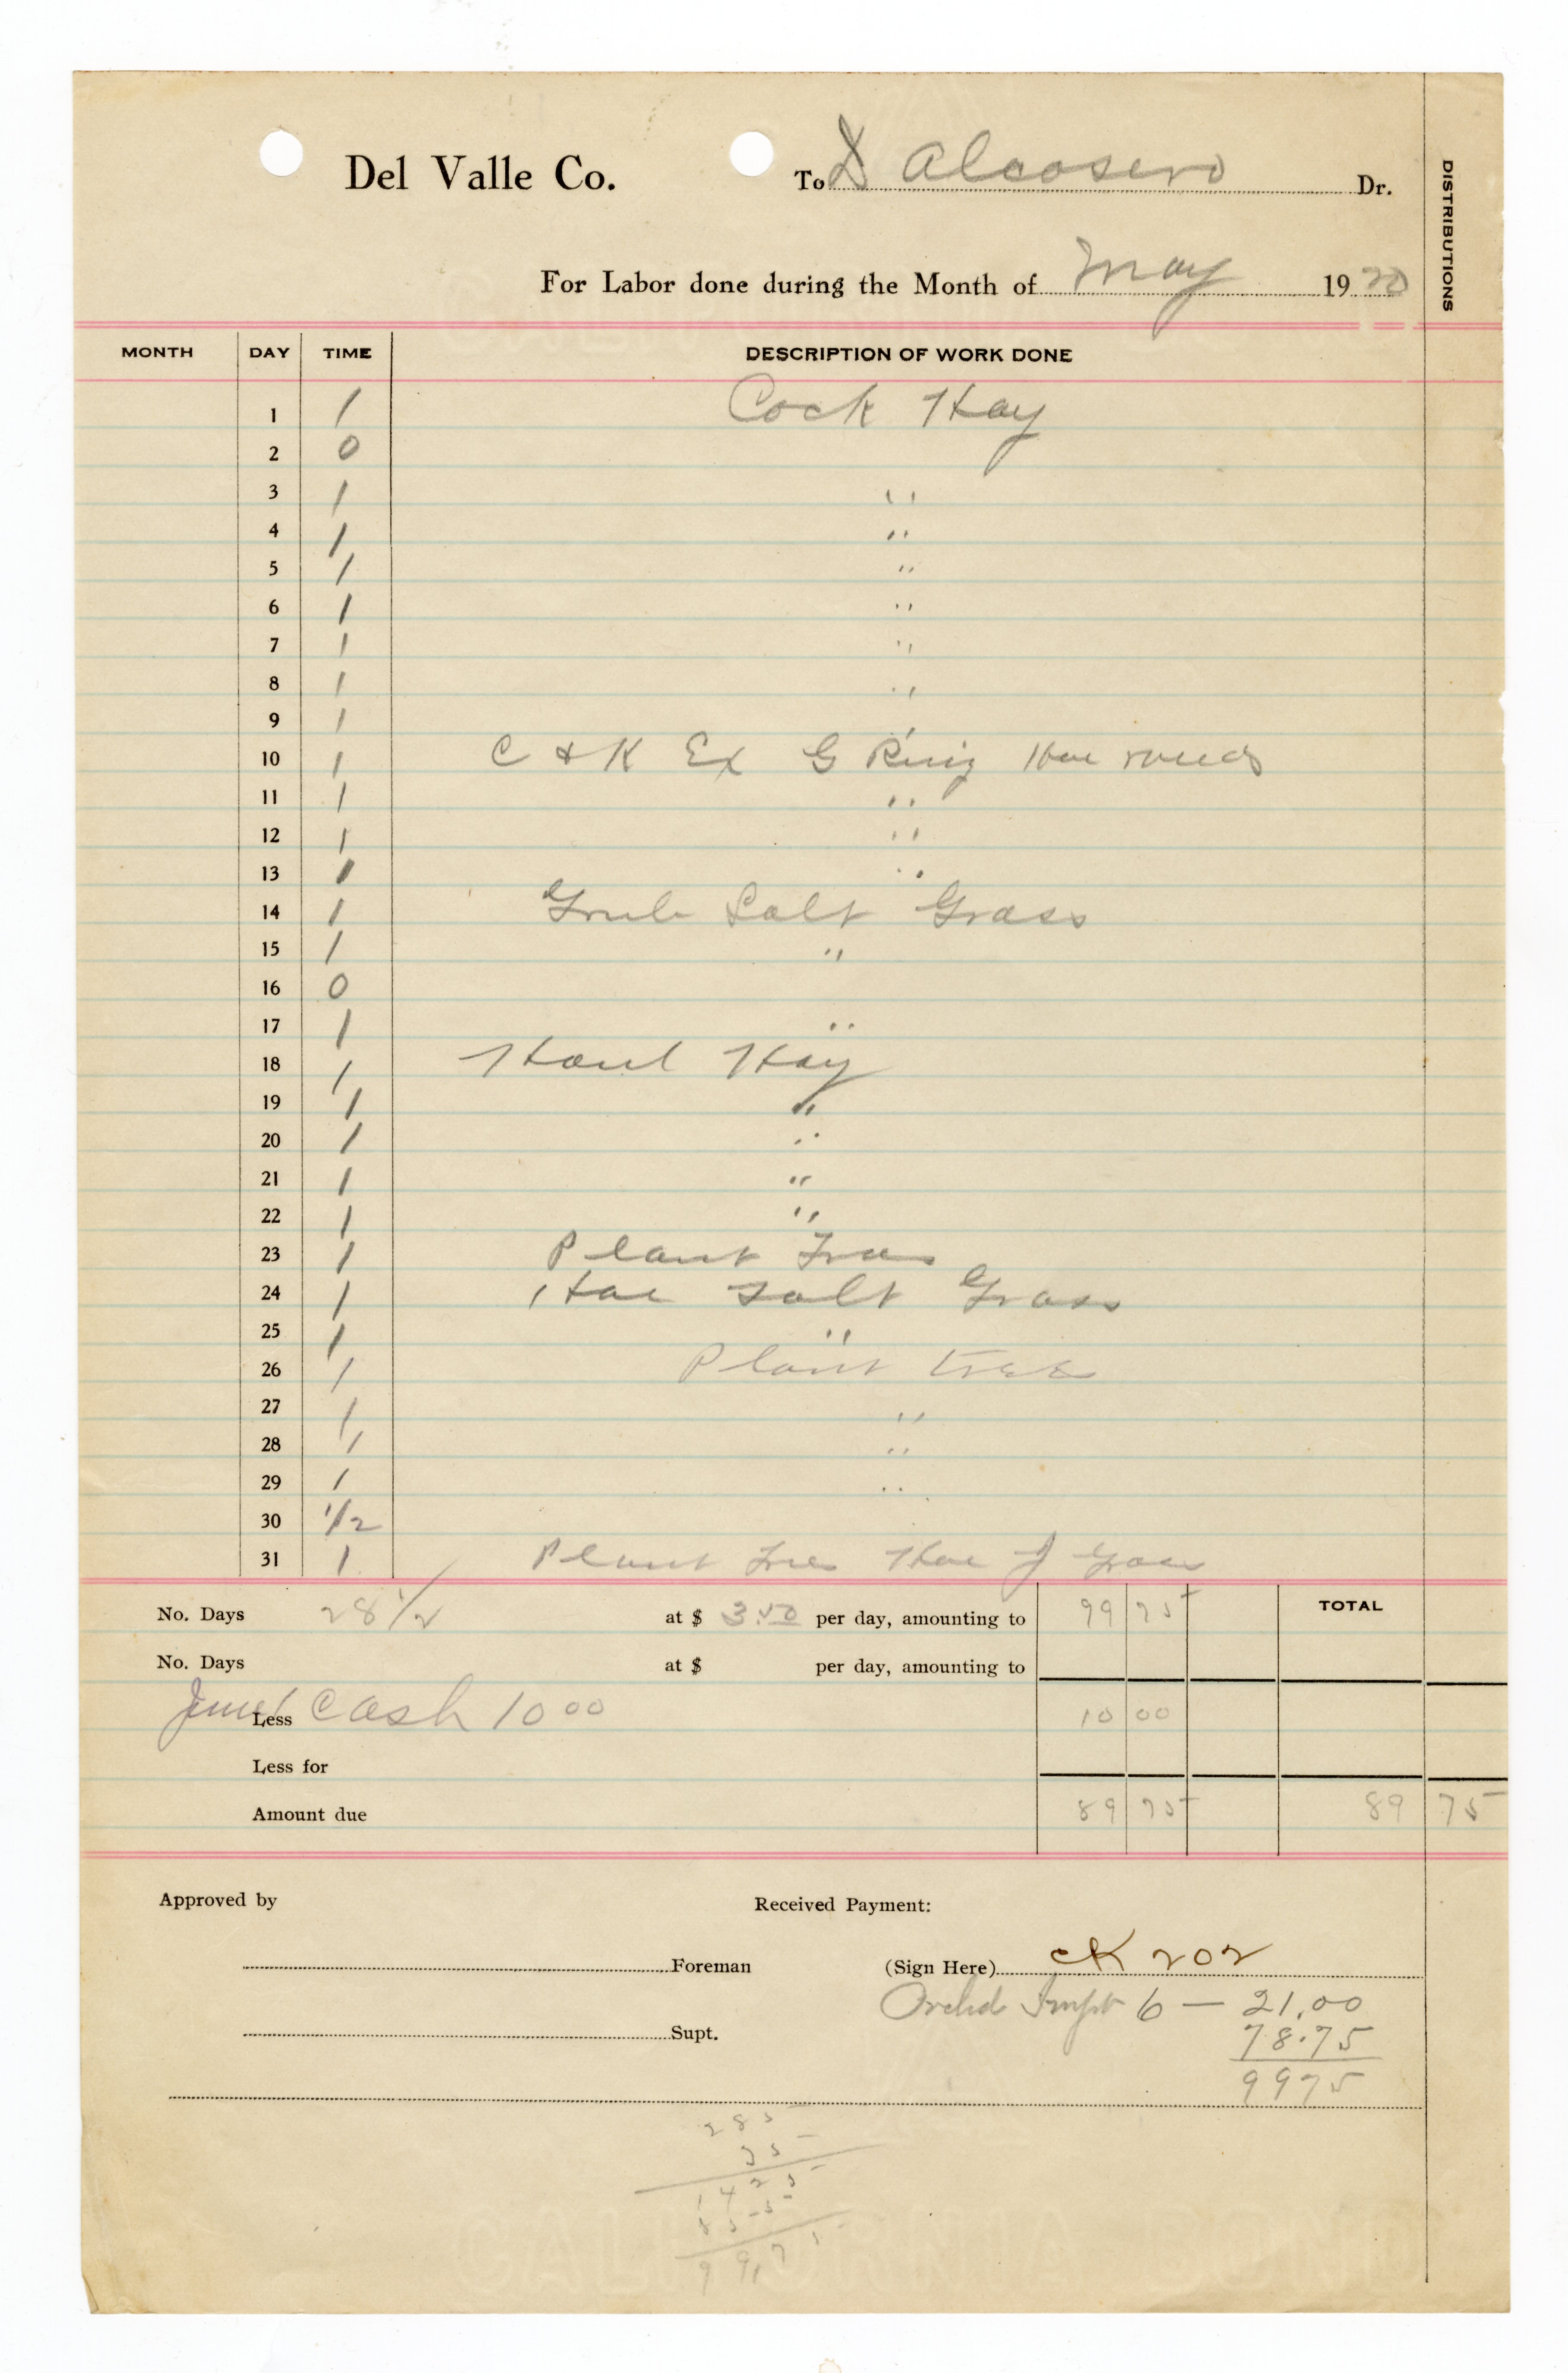 Del Valle Co. To D Alcosero Dr.
DISTRIBUTIONS
For Labor done during the Month of May 1920
MONTH DAY TIME DESCRIPTION OF WORK DONE
1 1 Cock Hay
2 0
3 1 "
4 1 "
5 1 "
6 1 "
7 1 "
8 1 "
9 1 "
10 1 C & K Ex G Hoe
11 1 "
12 1 "
13 1 "
14 1 Grub Salt Grass
15 1 "
16 0
17 1 "
18 1 Haul Hay
19 1 "
20 1 "
21 1 "
22 1 "
23 1 Plant Trees
24 1 Hoe Salt Grass
25 1 "
26 1 Plant trees
27 1 "
28 1 "
29 1 "
30 1/2
31 1 Plant Trees Hoe J Grass
No. Days 28 1/2 at $ 3.50 per day, amounting to 99 75 TOTAL
No. Days at $ per day, amounting to
June 1 Less Cash 10 00 10 00
Less for
Amount due 89 75 89 75
Approved by Received Payment:
Foreman (Sign Here) CK 202
Orchd Impt 6 — 21.00
Supt. 78.75
9975
285
35
1425
855
99,75